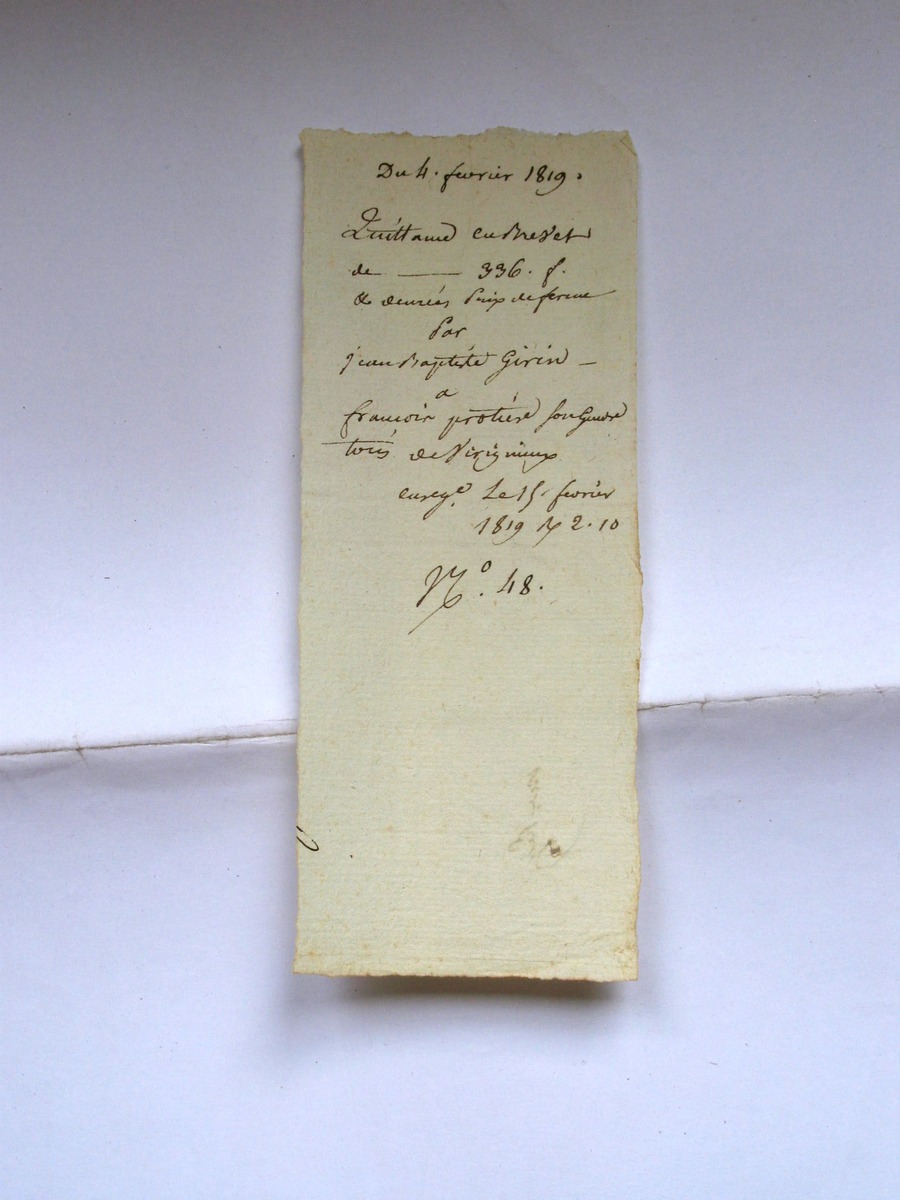 Du 4. fevrier 1819.
Quittance en Brevet
de — 336. f.
& denrées Prix de ferme
Par
jean Baptiste Girin —
a
francois protiere son Gendre
tous de Virigneux
enregé. Le 15. fevrier
1819 2.10
No. 48.